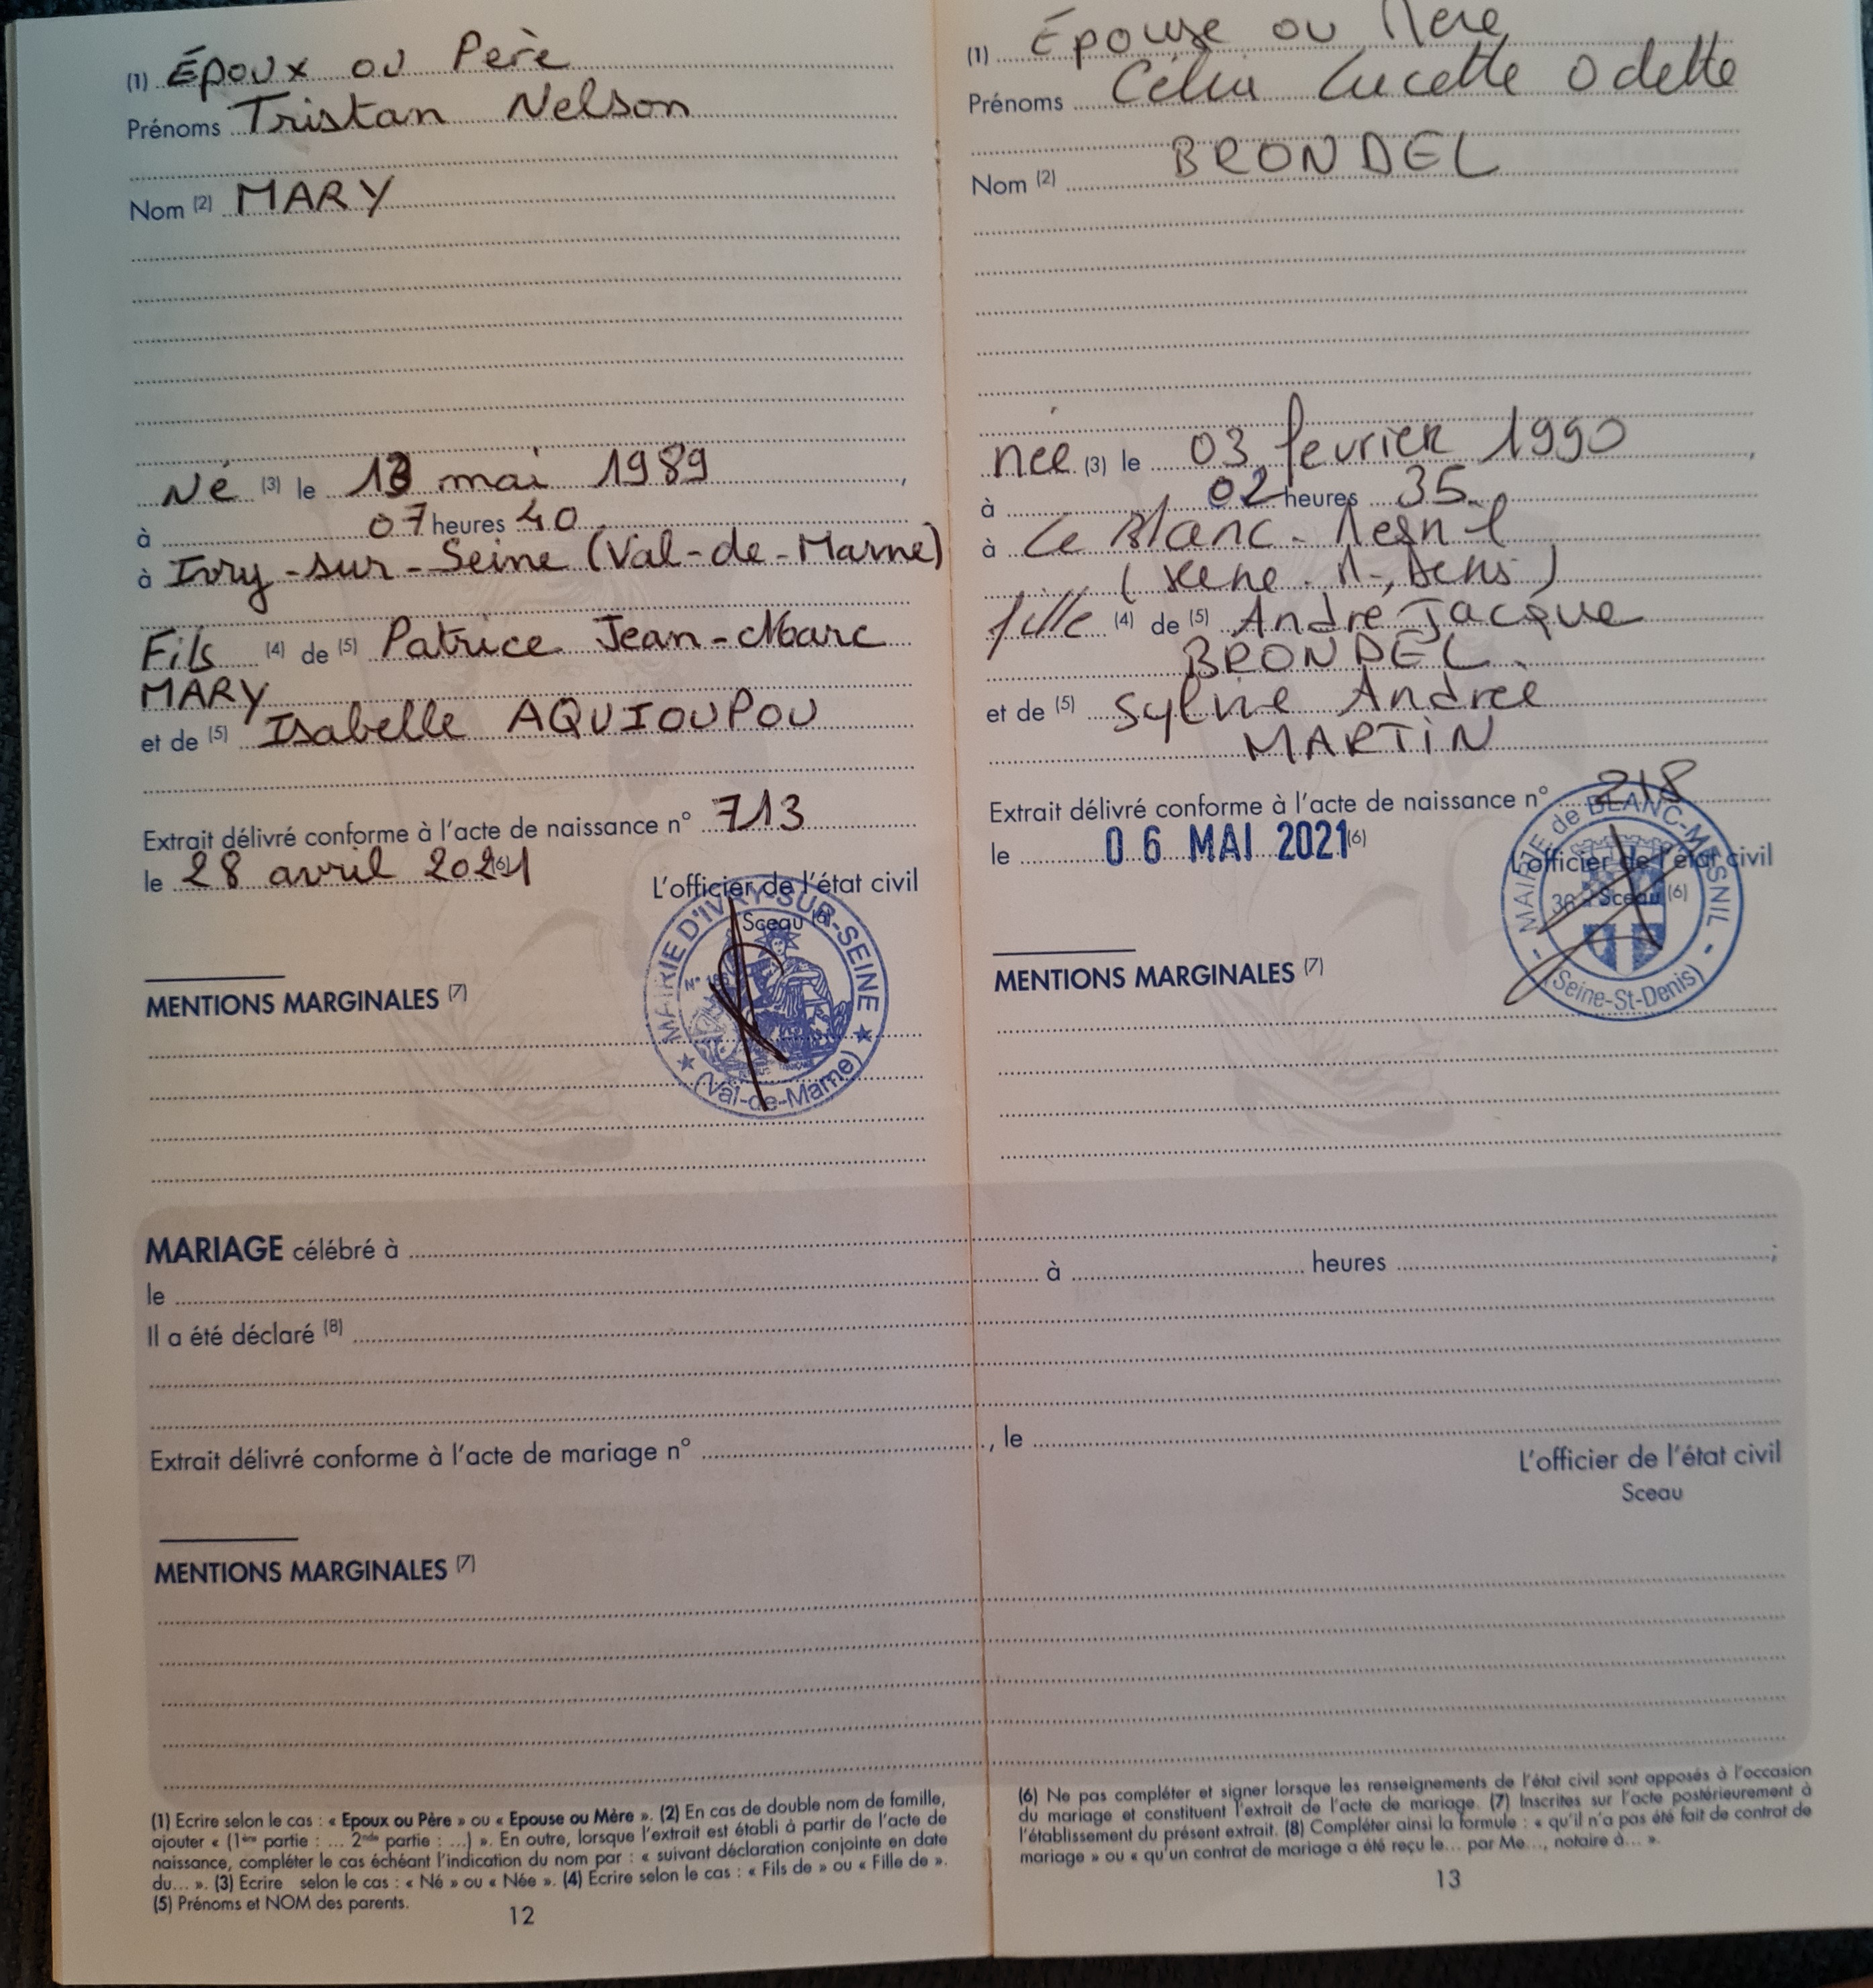 (1) Époux ou Père
Prénoms Tristan Nelson
Nom (2) MARY
Né (3) le 13 mai 1989,
à 07 heures 40
à Ivry-sur-Seine (Val-de-Marne)
Fils (4) de (5) Patrice Jean-Marc
MARY
et de (5) Isabelle AQUIOUPOU
Extrait délivré conforme à l'acte de naissance n° 713
le 28 avril 2021 (6)
L'officier de l'état civil
Sceau (6)
MAIRIE D'IVRY-SUR-SEINE
(Val-de-Marne)
MENTIONS MARGINALES (7)
(1) Épouse ou Mère
Prénoms Célia Lucette Odette
Nom (2) BRONDEL
née (3) le 03 fevrier 1990,
à 02 heures 35
à Le Blanc-Mesnil
(Seine-St-Denis)
fille (4) de (5) André Jacque
BRONDEL
et de (5) Sylvie Andrée
MARTIN
Extrait délivré conforme à l'acte de naissance n° 218
le 06 MAI 2021 (6)
L'officier de l'état civil
Sceau (6)
MAIRIE de BLANC-MESNIL
(Seine-St-Denis)
MENTIONS MARGINALES (7)
MARIAGE célébré à
le à heures ;
Il a été déclaré (8)
Extrait délivré conforme à l'acte de mariage n° , le
L'officier de l'état civil
Sceau
MENTIONS MARGINALES (7)
(1) Ecrire selon le cas : « Epoux ou Père » ou « Epouse ou Mère ». (2) En cas de double nom de famille,
ajouter « (1ère partie : ... 2nde partie : ...) ». En outre, lorsque l'extrait est établi à partir de l'acte de
naissance, compléter le cas échéant l'indication du nom par : « suivant déclaration conjointe en date
du... ». (3) Ecrire selon le cas : « Né » ou « Née ». (4) Ecrire selon le cas : « Fils de » ou « Fille de ».
(5) Prénoms et NOM des parents.
12
(6) Ne pas compléter et signer lorsque les renseignements de l'état civil sont apposés à l'occasion
du mariage et constituent l'extrait de l'acte de mariage. (7) Inscrites sur l'acte postérieurement à
l'établissement du présent extrait. (8) Compléter ainsi la formule : « qu'il n'a pas été fait de contrat de
mariage » ou « qu'un contrat de mariage a été reçu le... par Me..., notaire à... ».
13